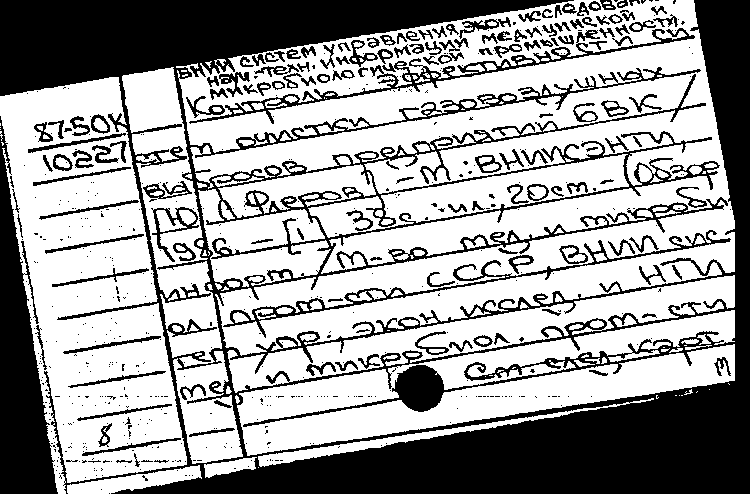 ВНИИ систем управления, экон. исследований,
науч.-техн. информации медицинской и
микробиологической промышленности.
87-50К
Контроль эффективности си-
10227
стем очистки газовоздушных
выбросов предприятий БВК /
[Ю. Л. Флеров]. - М.: ВНИИСЭНТИ,
1986. - [1], 38с.: ил.; 20см. - (Обзор
информ. / М-во мед. и микроби-
ол. пром-сти СССР, ВНИИ сис-
тем упр., экон. исслед. и НТИ
мед. и микробиол. пром-сти
См. след. карт.
М
8